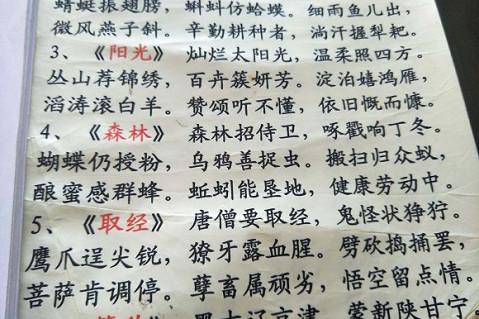 蜻蜓振翅膀，蝌蚪仿蛤蟆。细雨鱼儿出，
微风燕子斜。辛勤耕种者，淌汗握犁耙。
3、《阳光》 灿烂太阳光，温柔照四方。
丛山荐锦绣，百卉簇妍芳。淀泊嬉鸿雁，
滔涛滚白羊。赞颂听不懂，依旧慨而慷。
4、《森林》 森林招侍卫，啄戳响丁冬。
蝴蝶仍授粉，乌鸦善捉虫。搬扫归众蚁，
酿蜜感群蜂。蚯蚓能垦地，健康劳动中。
5、《取经》 唐僧要取经，鬼怪状狰狞。
鹰爪逞尖锐，獠牙露血腥。劈砍捣捅罢，
菩萨肯调停。孽畜属顽劣，悟空留点情。
蒙新陕甘宁。